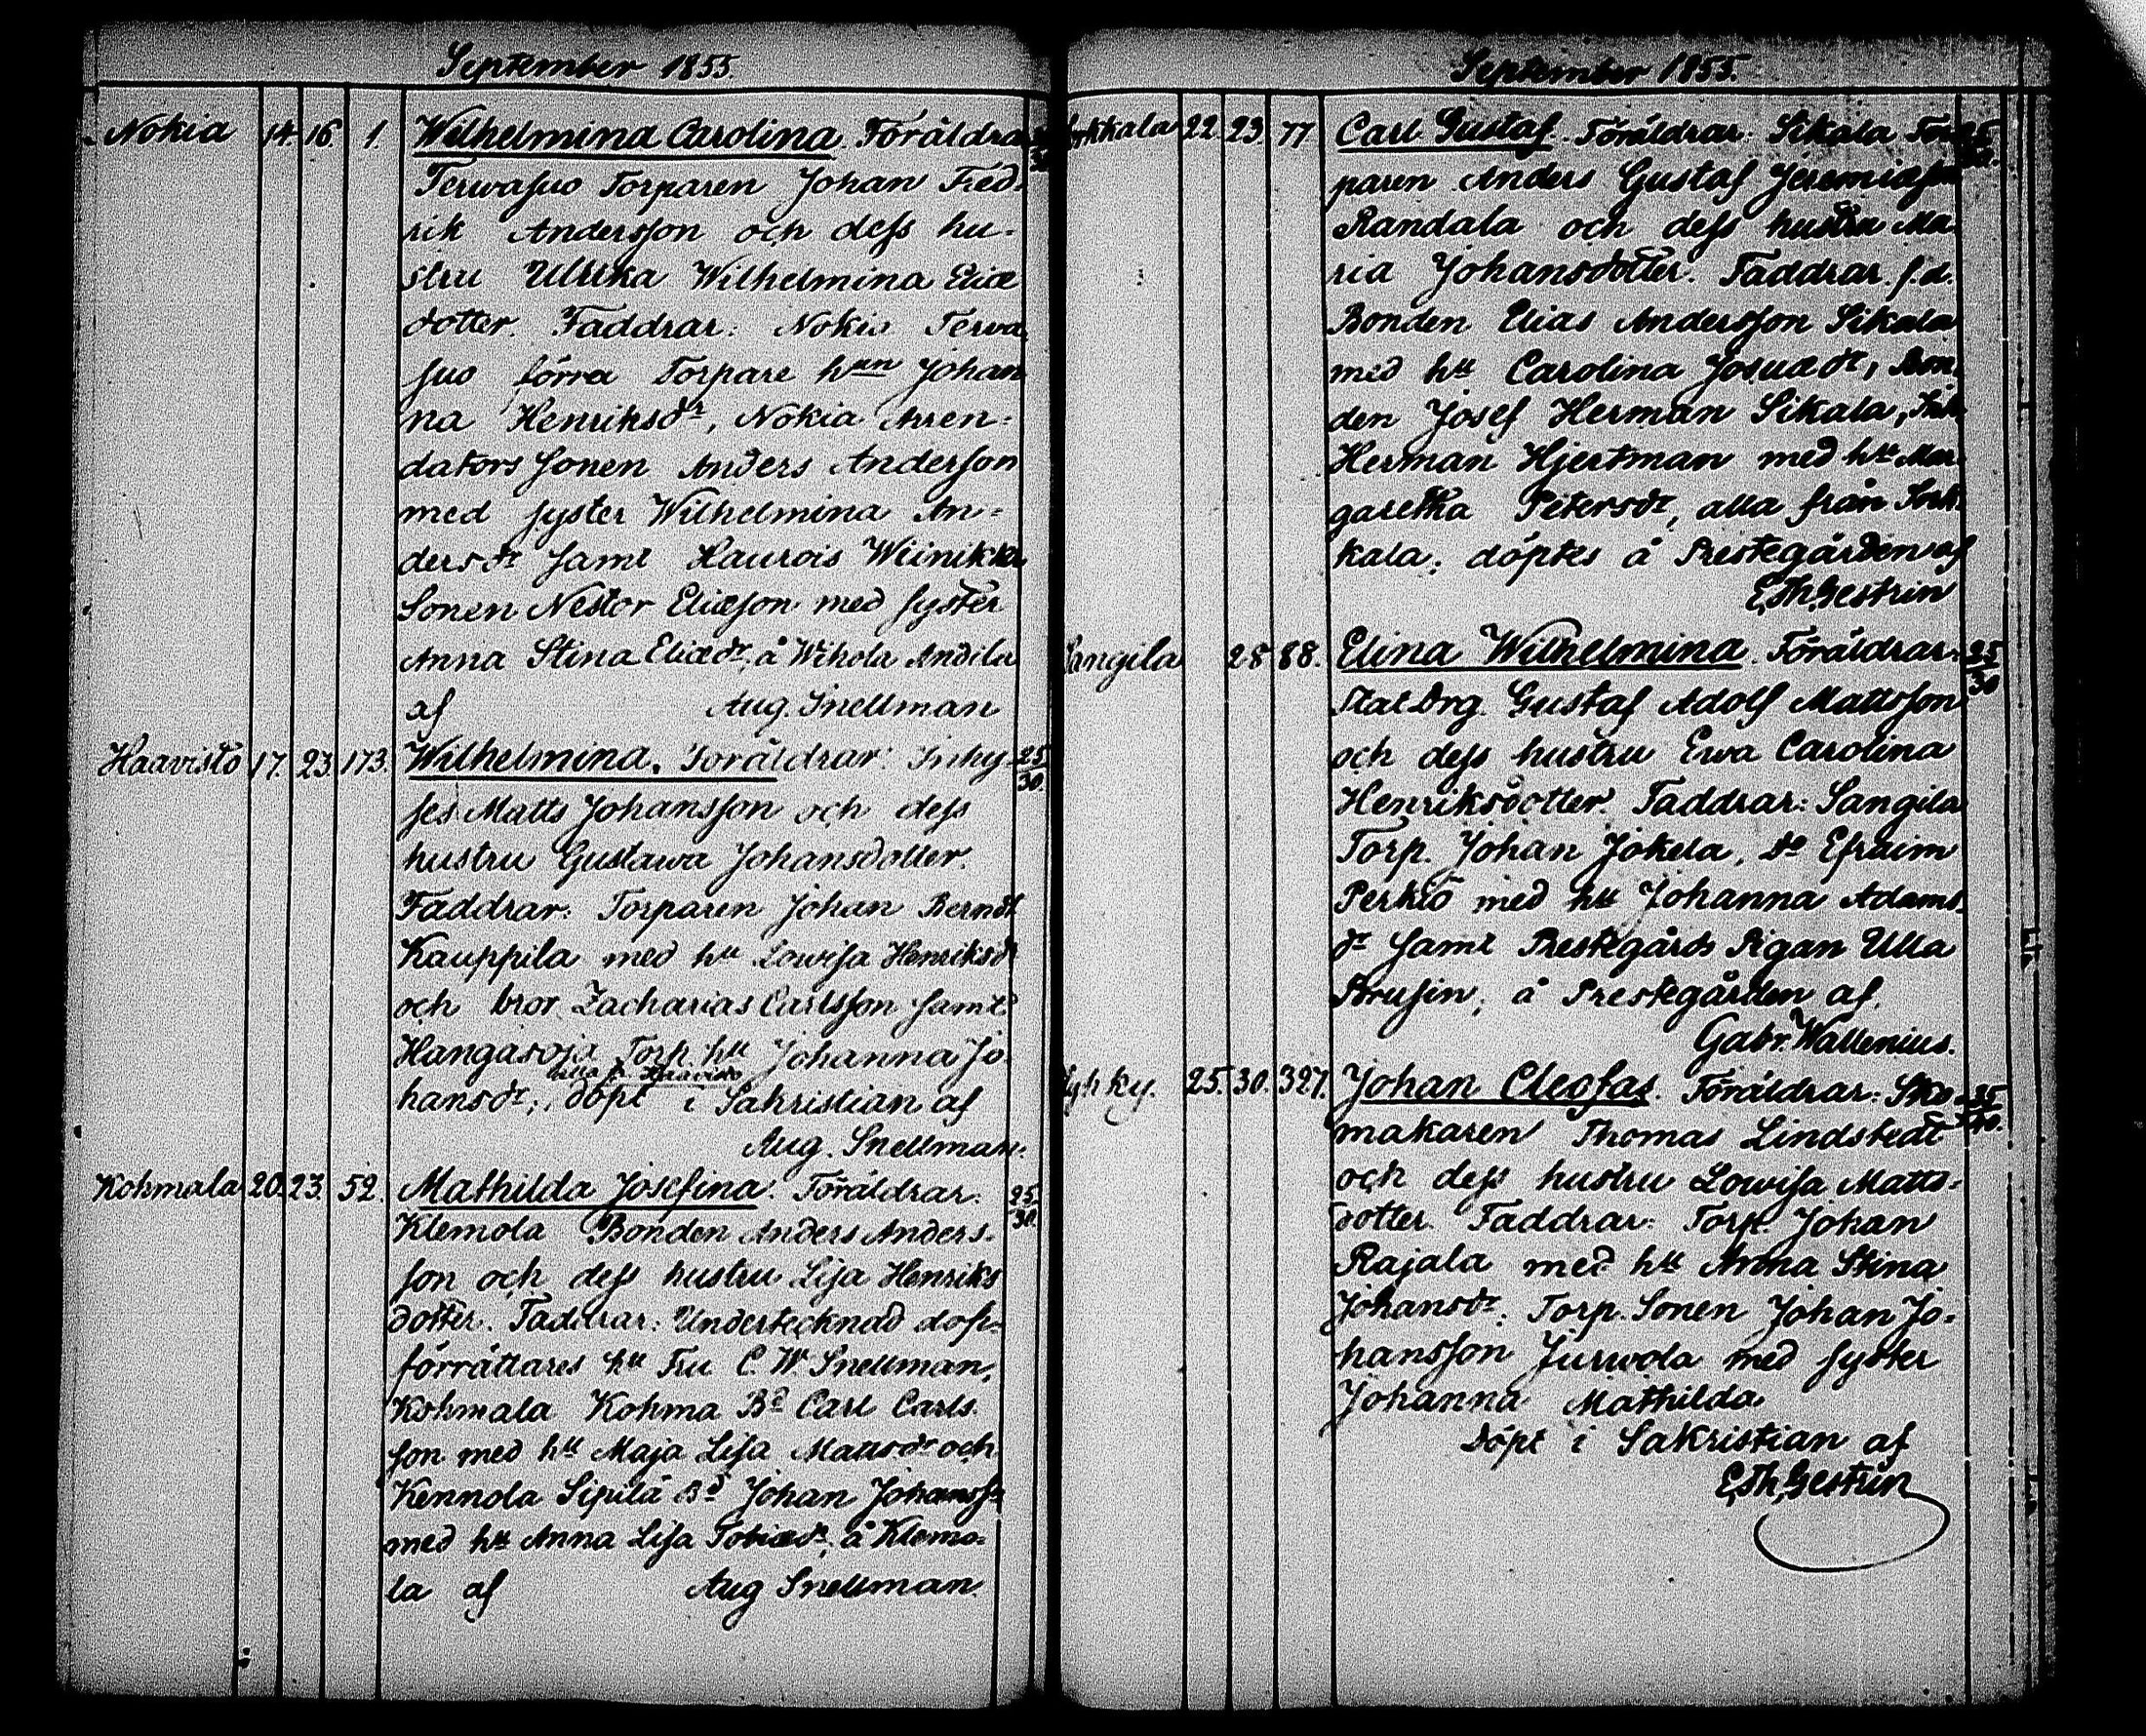 September 1855.
Nokia 14. 16. 1. Wilhelmina Carolina. Föräldra
Terwasuo Torparen Johan Fred.
rik Andersson och dess hu-
stru Ulrika Wilhelmina Eliæ
dotter. Faddrar: Nokia Terva
suo förra Torpare hun Johan
na Henriksdr, Nokia Arren-
dators Sonen Anders Anderson
med syster Wilhelmina An-
dersdr samt Haurois Wiinikka
Sonen Nestor Eliæson med syster
Anna Stina Eliædr, å Wihola Andila
af Aug. Snellman
Haavisto 17. 23. 173. Wilhelmina. Föräldrar: Inhy- 25/30.
ses Matts Johansson och dess
hustru Gustawa Johansdotter.
Faddrar: Torparen Johan Berndt
Kauppila med hu Lowisa Henriksdr
och bror Zacharias Carlsson samt
Hangasoja Torp. hu Johanna Jo-
alla fr. Haavisto
hansdr; döpt i Sakristian af
Aug. Snellman.
Kohmala 20. 23. 52. Mathilda Josefina. Föräldrar: 25/30.
Klemola Bonden Anders Anders-
son och dess hustru Lisa Henriks
dotter. Faddrar: Undertecknad dop-
förrättares hu Fru C. W. Snellman,
Kohmala Kohma Bd Carl Carls-
son med hu Maja Lisa Mattsdr och
Kennola Sipilä Bd Johan Johanss.
med hu Anna Lisa Tobiædr, å Klemo-
la af Aug Snellman.
September 1855.
22. 23. 77 Carl Gustaf. Föräldrar: Sikala Tor
paren Anders Gustaf Jeremiæson
Randala och dess hustru Ma-
ria Johansdotter. Faddrar: f.d.
Bonden Elias Andersson Sikala
med hu Carolina Josuædr, Bon-
den Josef Herman Sikala,
Herman Hjertman med hu Mar-
garetha Petersdr, alla från Sork-
kala; döptes å Prestegården af
E. Th. Gestrin
Sangila 28 88. Elina Wilhelmina. Föräldrar: 25/30
Statdrg. Gustaf Adolf Mattsson
och dess hustru Ewa Carolina
Henriksdotter. Faddrar: Sangila
Torp. Johan Jokela, do Efraim
Perkiö med hu Johanna Adams-
dr samt Prestegårds Pigan Ulla
Strusin; å Prestegården af
Gabr. Wallenius.
25. 30. 327. Johan Cleofas. Föräldrar: Sko-
makaren Thomas Lindstedt
och dess hustru Lowisa Matts-
dotter Faddrar: Torp. Johan
Rajala med hu Anna Stina
Johansdr; Torp. Sonen Johan Jo-
hansson Jurwola med syster
Johanna Mathilda.
döpt i Sakristian af
E. Th. Gestrin